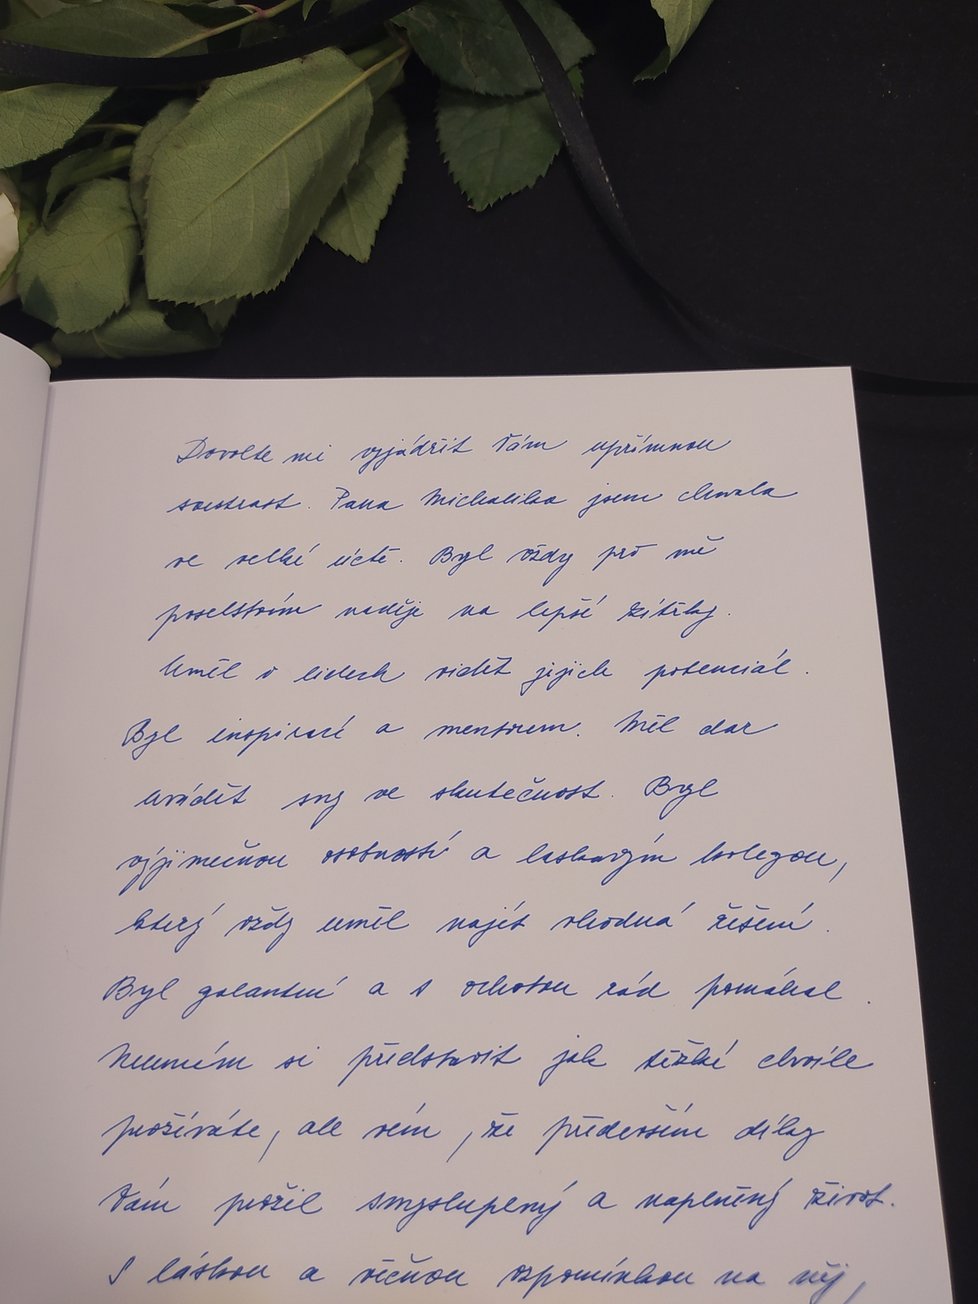 Dovolte mi vyjádřit Vám upřímnou
soustrast. Pana Michalíka jsem chovala
ve velké úctě. Byl vždy pro mě
poselstvím naděje na lepší zítřky.
Uměl v lidech vidět jejich potenciál.
Byl inspirací a mentorem. Měl dar
uvádět sny ve skutečnost. Byl
výjimečnou osobností a laskavým kolegou,
který vždy uměl najít vhodná řešení.
Byl galantní a s ochotou rád pomáhal.
Neumím si představit jak těžké chvíle
prožíváte, ale vím, že především díky
Vám prožil smysluplný a naplněný život.
S láskou a věčnou vzpomínkou na něj,